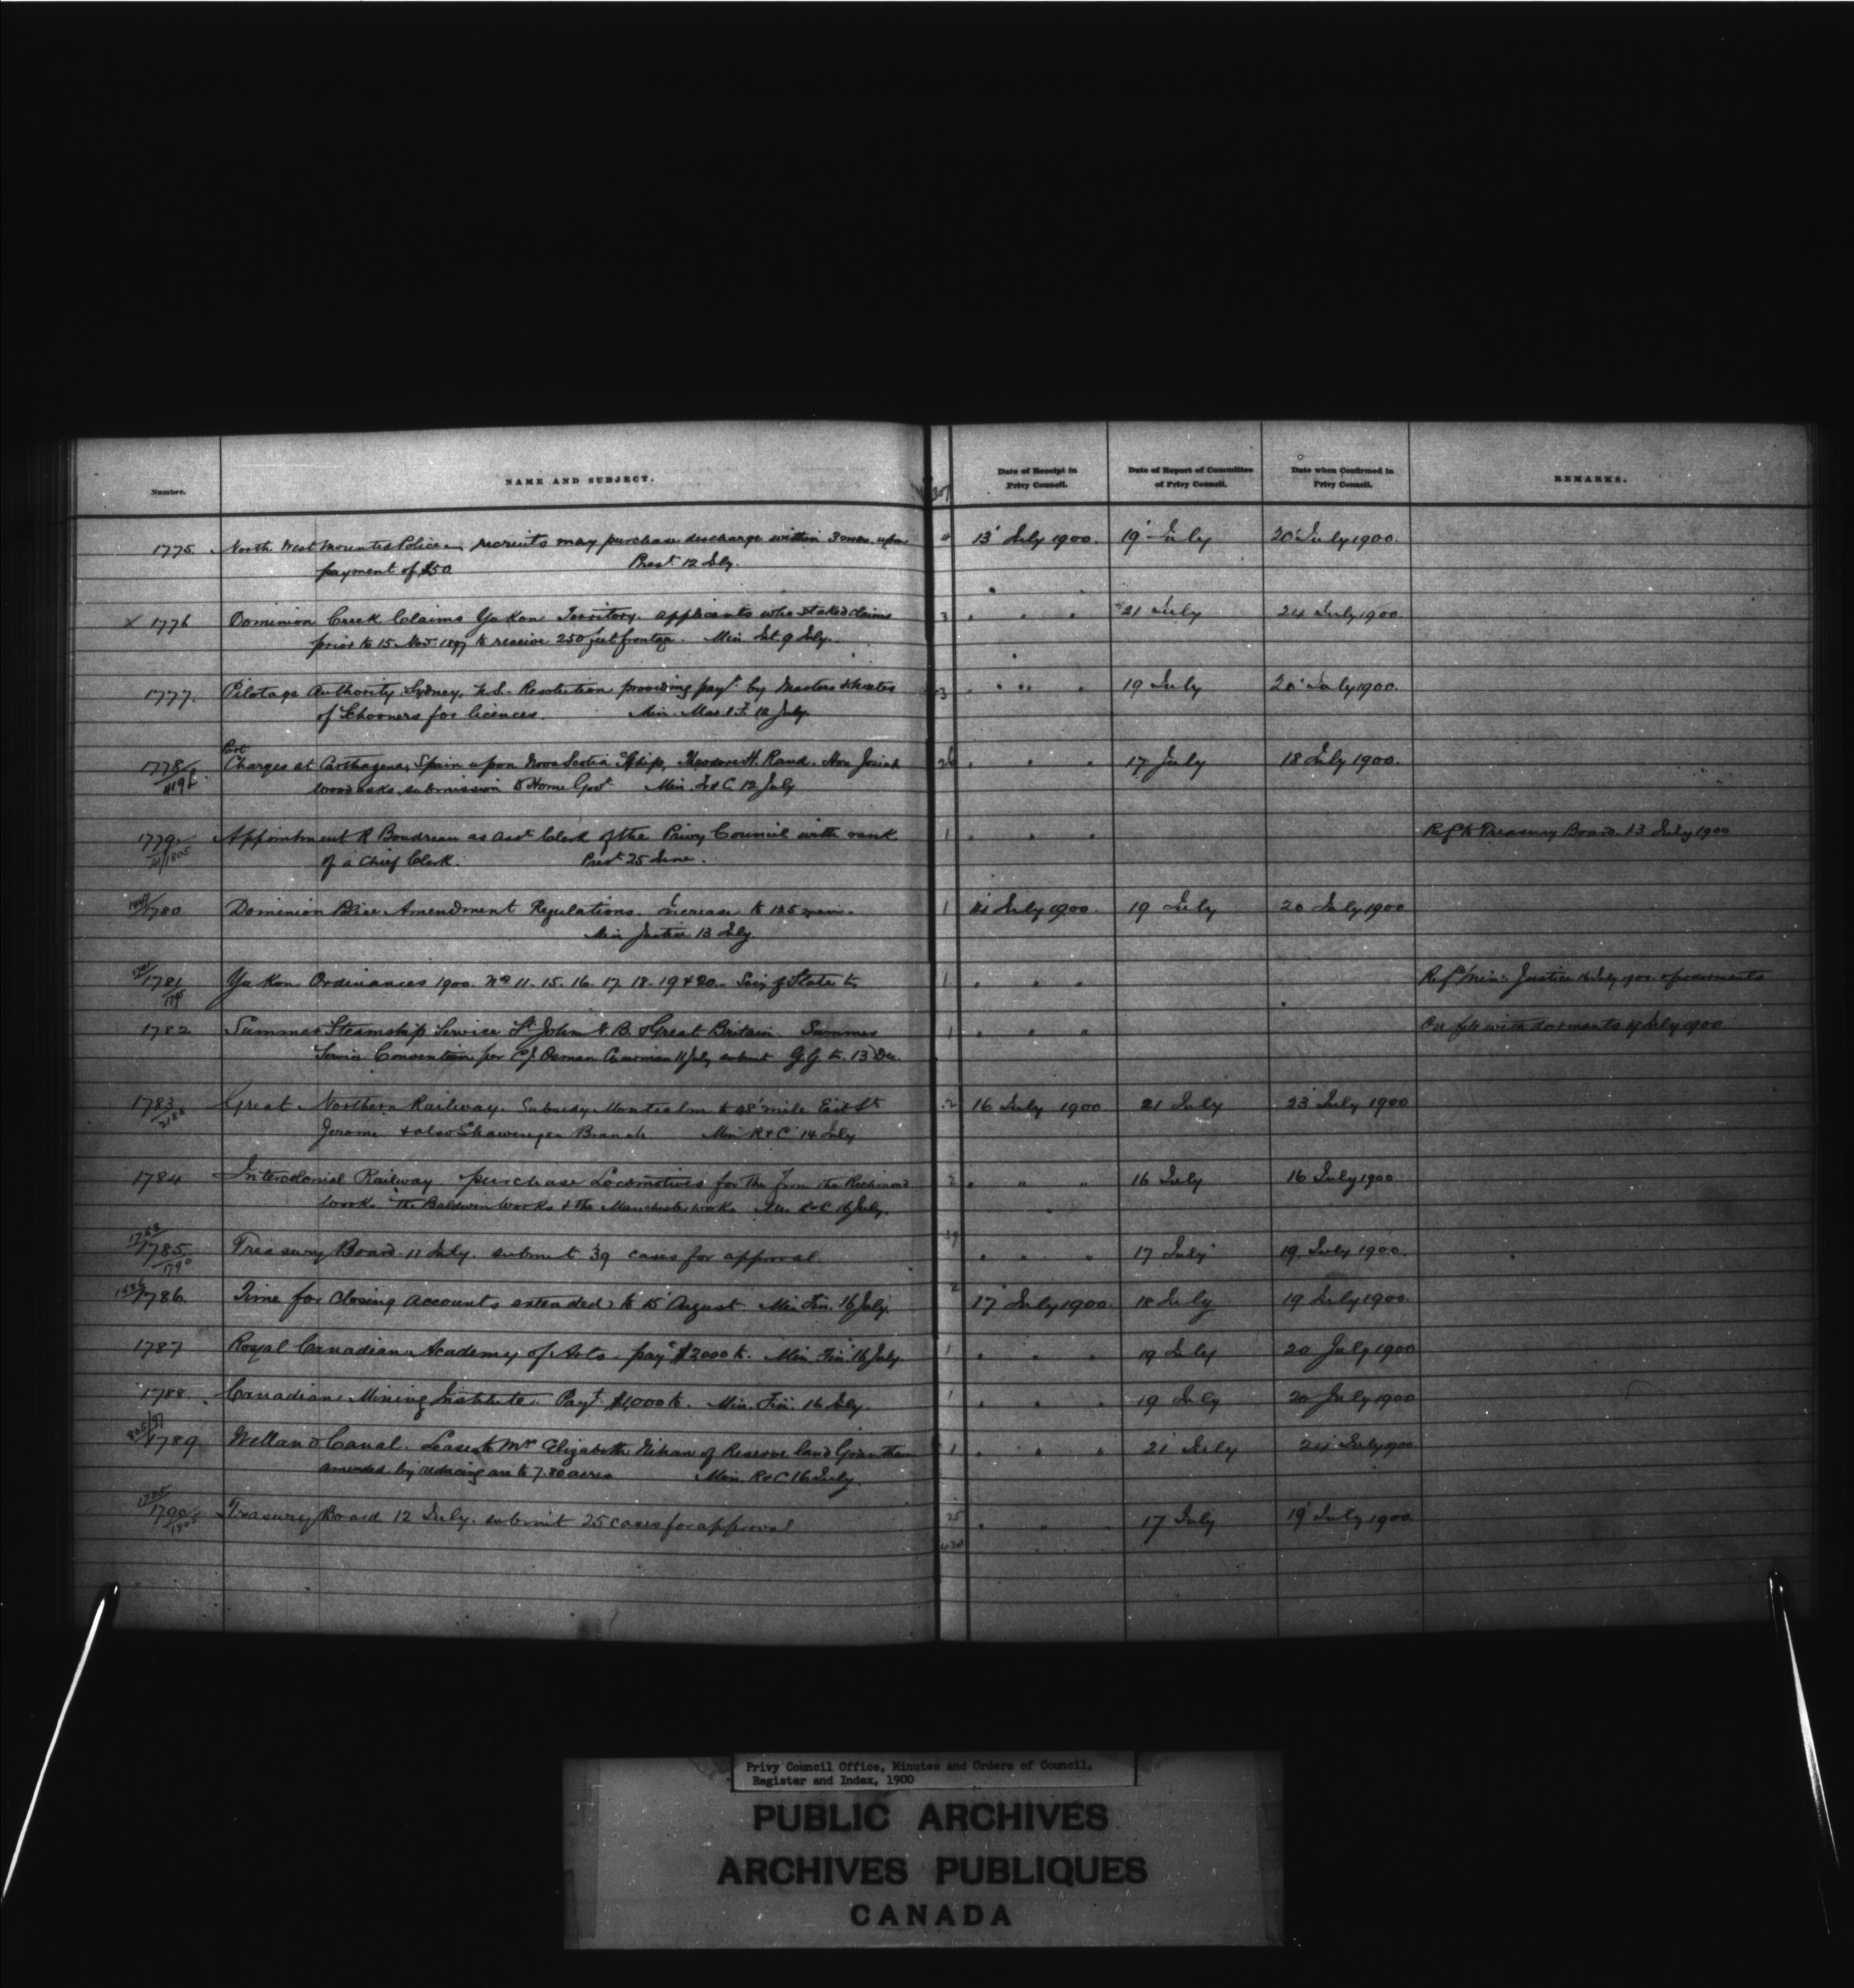 Number.
NAME AND SUBJECT.
307
Date of Receipt in Privy Council.
Date of Report of Committee of Privy Council.
Date when Confirmed in Privy Council.
REMARKS.
1775 North West Mounted Police recruits may purchase discharge within 3 mos. upon 4 13 July 1900. 19 July 20 July 1900.
payment of $50 Prest 12 July.
x 1776 Dominion Creek Claims Yukon Territory. applicants who staked claims 3 " " " 21 July 24 July 1900.
prior to 15 Nov. 1897 to receive 250 feet frontage. Min. Int. 9 July.
1777. Pilotage Authority Sydney, N.S. Resolution providing payt by Masters & Mates 3 " " " 19 July 20 July 1900.
of Schooners for licences. Min. Mar & F. 12 July
Port
1778 Charges at Carthagena, Spain upon Nova Scotia Ship, Theodore H. Rand. Hon Josiah 26 " " " 17 July 18 July 1900.
Wood asks submission to Home Govt Min. T & C 12 July
1779. Appointment R Boudreau as asst Clerk of the Privy Council with rank 1 " " " Ref to Treasury Board. 13 July 1900
1805 of a Chief Clerk. Prest 25 June.
1780 Dominion Police Amendment Regulations. increase to 125 men. 1 July 1900. 19 July 20 July 1900
Min Justice 13 July.
1781 Yukon Ordinances 1900. Nos 11. 15. 16. 17. 18. 19 & 20. Secy of State to 1 " " " Ref Min: Justice 16 July 1900.
1782 Summer Steamship Service St John N.B. & Great Britain. Summer 1 " " " On file with dormants July 1900
Service Convention per C.J. Osman Chairman 11 July submit G.G. to. 13 Dec.
1783 Great Northern Railway. Subsidy Montcalm to 28 mile East St 2 16 July 1900 21 July 23 July 1900
2188 Jerome & also Shawenegan Branch Min R & C 14 July
1784 Intercolonial Railway. purchase Locomotives for the from the Richmond 2 " " " 16 July 16 July 1900
works. the Baldwin works & the Manchester works Min R & C 16 July.
1785 Treasury Board. 11 July. submit 39 cases for approval. 39 " " " 17 July 19 July 1900.
1790
1786. Time for closing accounts extended to 15 August Min Fin. 16 July. 2 17 July 1900. 18 July 19 July 1900.
1787 Royal Canadian Academy of Arts - payt $2000 to. Min. Fin 16 July. 1 " " " 19 July 20 July 1900
1788. Canadian Mining Institute. Payt $1,000 to. Min. Fin. 16 July. 1 " " " 19 July 20 July 1900
1789 Welland Canal. Lease to Mrs Elizabeth Nihan of Reserve land Grantham 1 " " " 21 July 24 July 1900
amended by reducing area to 7.80 acres Min. R & C 16 July.
1790 Treasury Board 12 July. submit 25 cases for approval 25 " " 17 July 19 July 1900.
1805
Privy Council Office, Minutes and Orders of Council,
Register and Index, 1900
PUBLIC ARCHIVES
ARCHIVES PUBLIQUES
CANADA